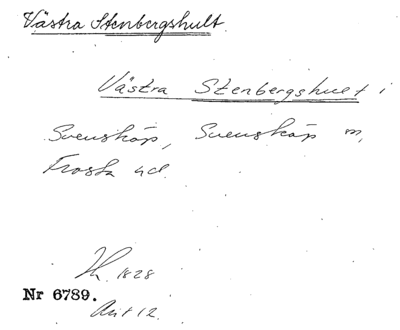 Västra Stenbergshult
Västra Stenbergshult i
Svensköp, Svensköp m,
Frosta hd.
Hk. 1828
Nr 6789.
Akt 12.